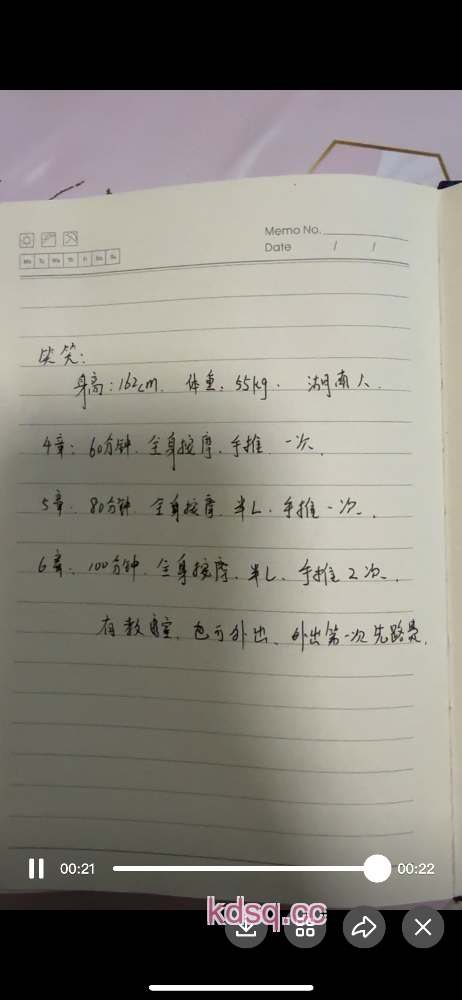 Memo No.
Date / /
Mo Tu We Th Fr Sa Su
笑笑:
身高:162cm. 体重:55kg. 湖南人.
4章: 60分钟. 全身按摩. 手推 一次.
5章: 80分钟. 全身按摩. 半L. 手推一次.
6章: 100分钟. 全身按摩. 半L. 手推2次.
有教室. 也可外出. 外出第一次先路费.
00:21
00:22
kdsq.cc